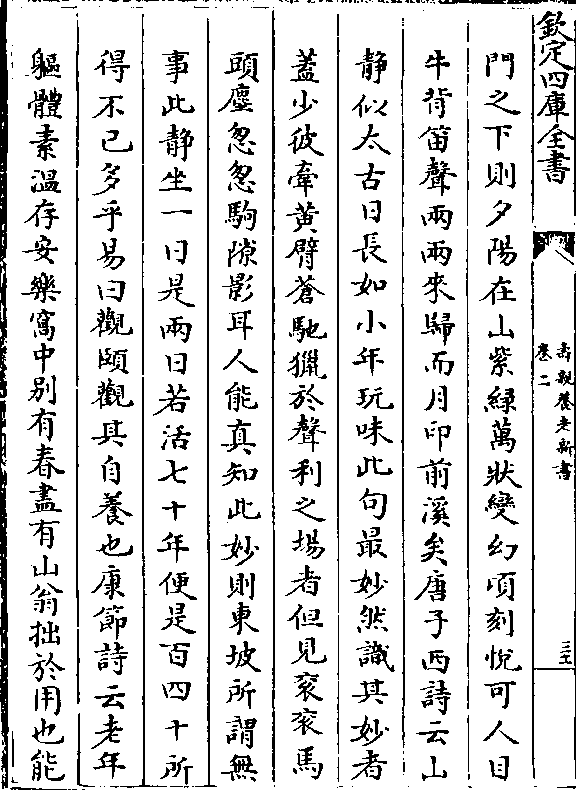 欽定四庫全書
壽親養老新書
卷二
三六
門之下則夕陽在山紫緑萬狀變幻頃刻悅可人目
牛背笛聲兩兩來歸而月印前溪矣唐子西詩云山
静似太古日長如小年玩味此句最妙然識其妙者
蓋少彼牽黄臂蒼馳獵於聲利之場者但見衮衮馬
頭塵怱怱駒隙影耳人能真知此妙則東坡所謂無
事此静坐一日是兩日若活七十年便是百四十所
得不已多乎易曰觀頤觀其自養也康節詩云老年
軀體素温存安樂窩中别有春盡有山翁拙於用也能